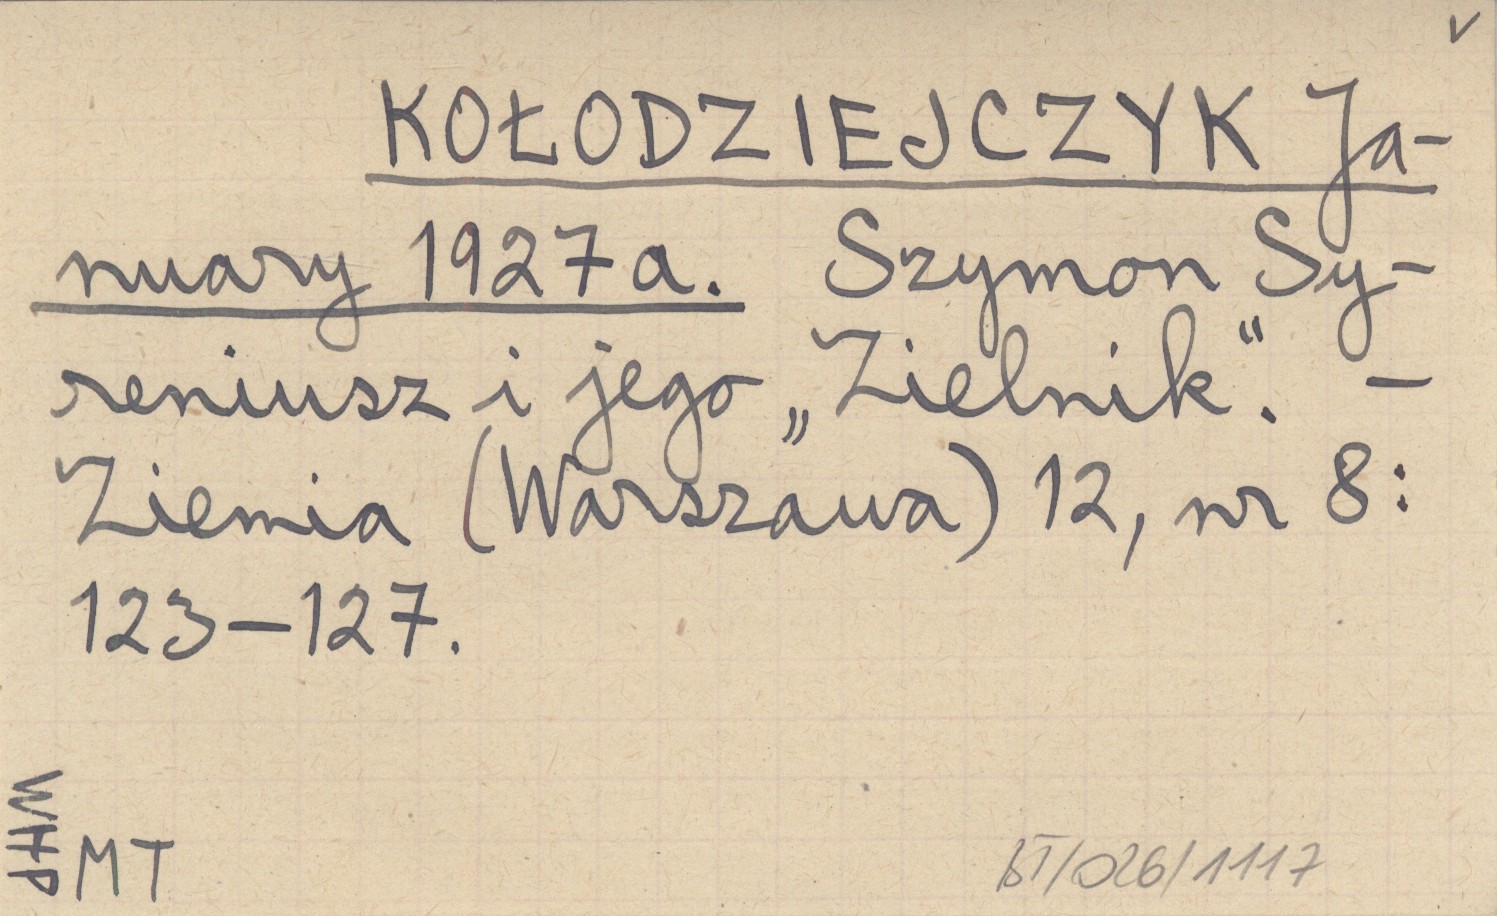 KOŁODZIEJCZYK Ja-
nuary 1927a. Szymon Sy-
reniusz i jego „Zielnik“. –
Ziemia (Warszawa) 12, nr 8:
123–127.
WHP
MT
BT/026/1117